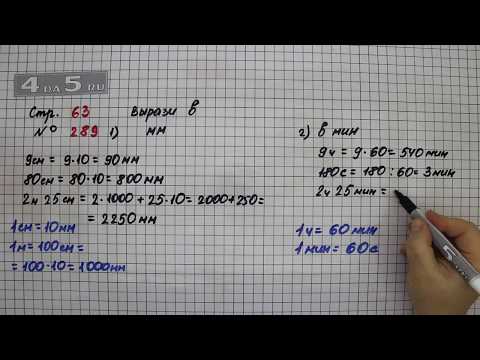 4 DA 5 RU
Стр. 63 Вырази в
№ 289 1) мм
9см = 9·10 = 90 мм
80см = 80·10 = 800 мм
2м 25 см = 2·1000 + 25·10 = 2000+250=
= 2250 мм
1см = 10мм
1м = 100см =
= 100·10 = 1000мм
2) в мин
9ч = 9·60 = 540 мин
180с = 180 : 60 = 3мин
2ч 25 мин =
1ч = 60 мин
1 мин = 60с